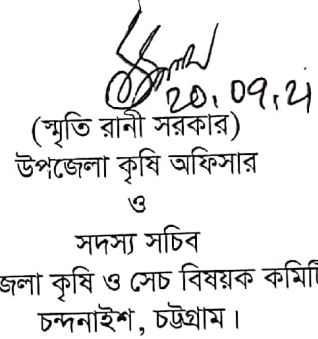 20.09.21
(স্মৃতি রানী সরকার)
উপজেলা কৃষি অফিসার
ও
সদস্য সচিব
জেলা কৃষি ও সেচ বিষয়ক কমিটি
চন্দনাইশ, চট্টগ্রাম।